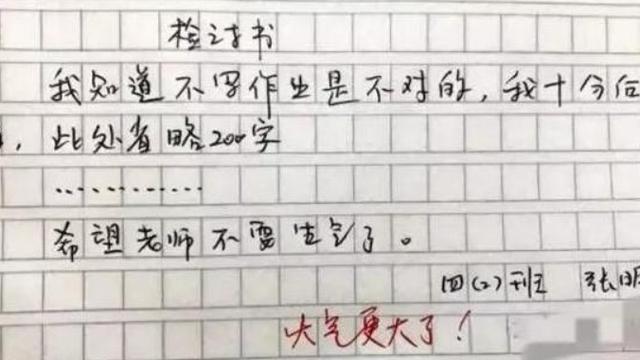 检讨书
我知道不写作业是不对的，我十分后
，此处省略200字
…………
希望老师不要生气了。
四(2)班 张明
火气更大了！